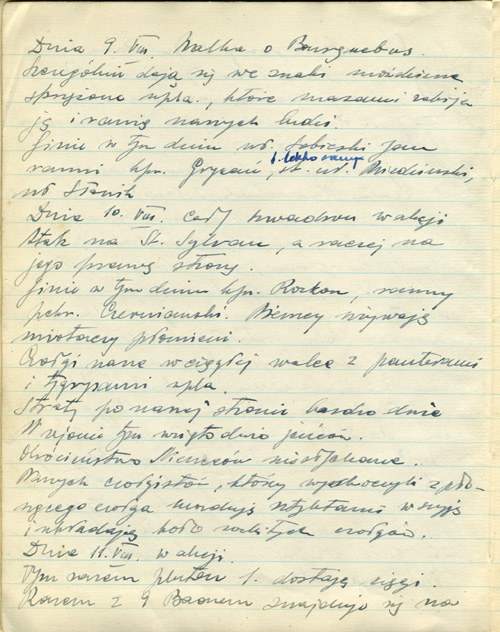 Dnia 9. VIII. Walka o Bourguebus.
Szczególnie dają się we znaki moździerze
sprzężone npla., które masami zabija
ją i ranią naszych ludzi.
Ginie w tym dniu uł. Sobieski Jan
ranni kpr. st. uł. Miedziński,
b. lekko ranny
uł. Słonik
Dnia 10. VIII. cały szwadron w akcji
Atak na St. Sylvain, a raczej na
jego prawą stronę.
Ginie w tym dniu kpr. ranny
pchr. Czerniawski. Niemcy używają
miotaczy płomieni.
Czołgi nasze w ciągłej walce z panterami
i tygrysami npla.
Straty po naszej stronie bardzo duże
W rejonie tym wzięto dużo jeńców.
Okrócieństwo Niemców niesłychane.
Naszych czołgistów, którzy wyskoczyli z pło-
nącego czołga mordują sztyletami w szyję
i układają koło rozbitych czołgów.
Dnia 11. VIII. w akcji.
Tym razem pluton 1. dostaje cięgi.
Razem z 9 Baonem znajduje się na